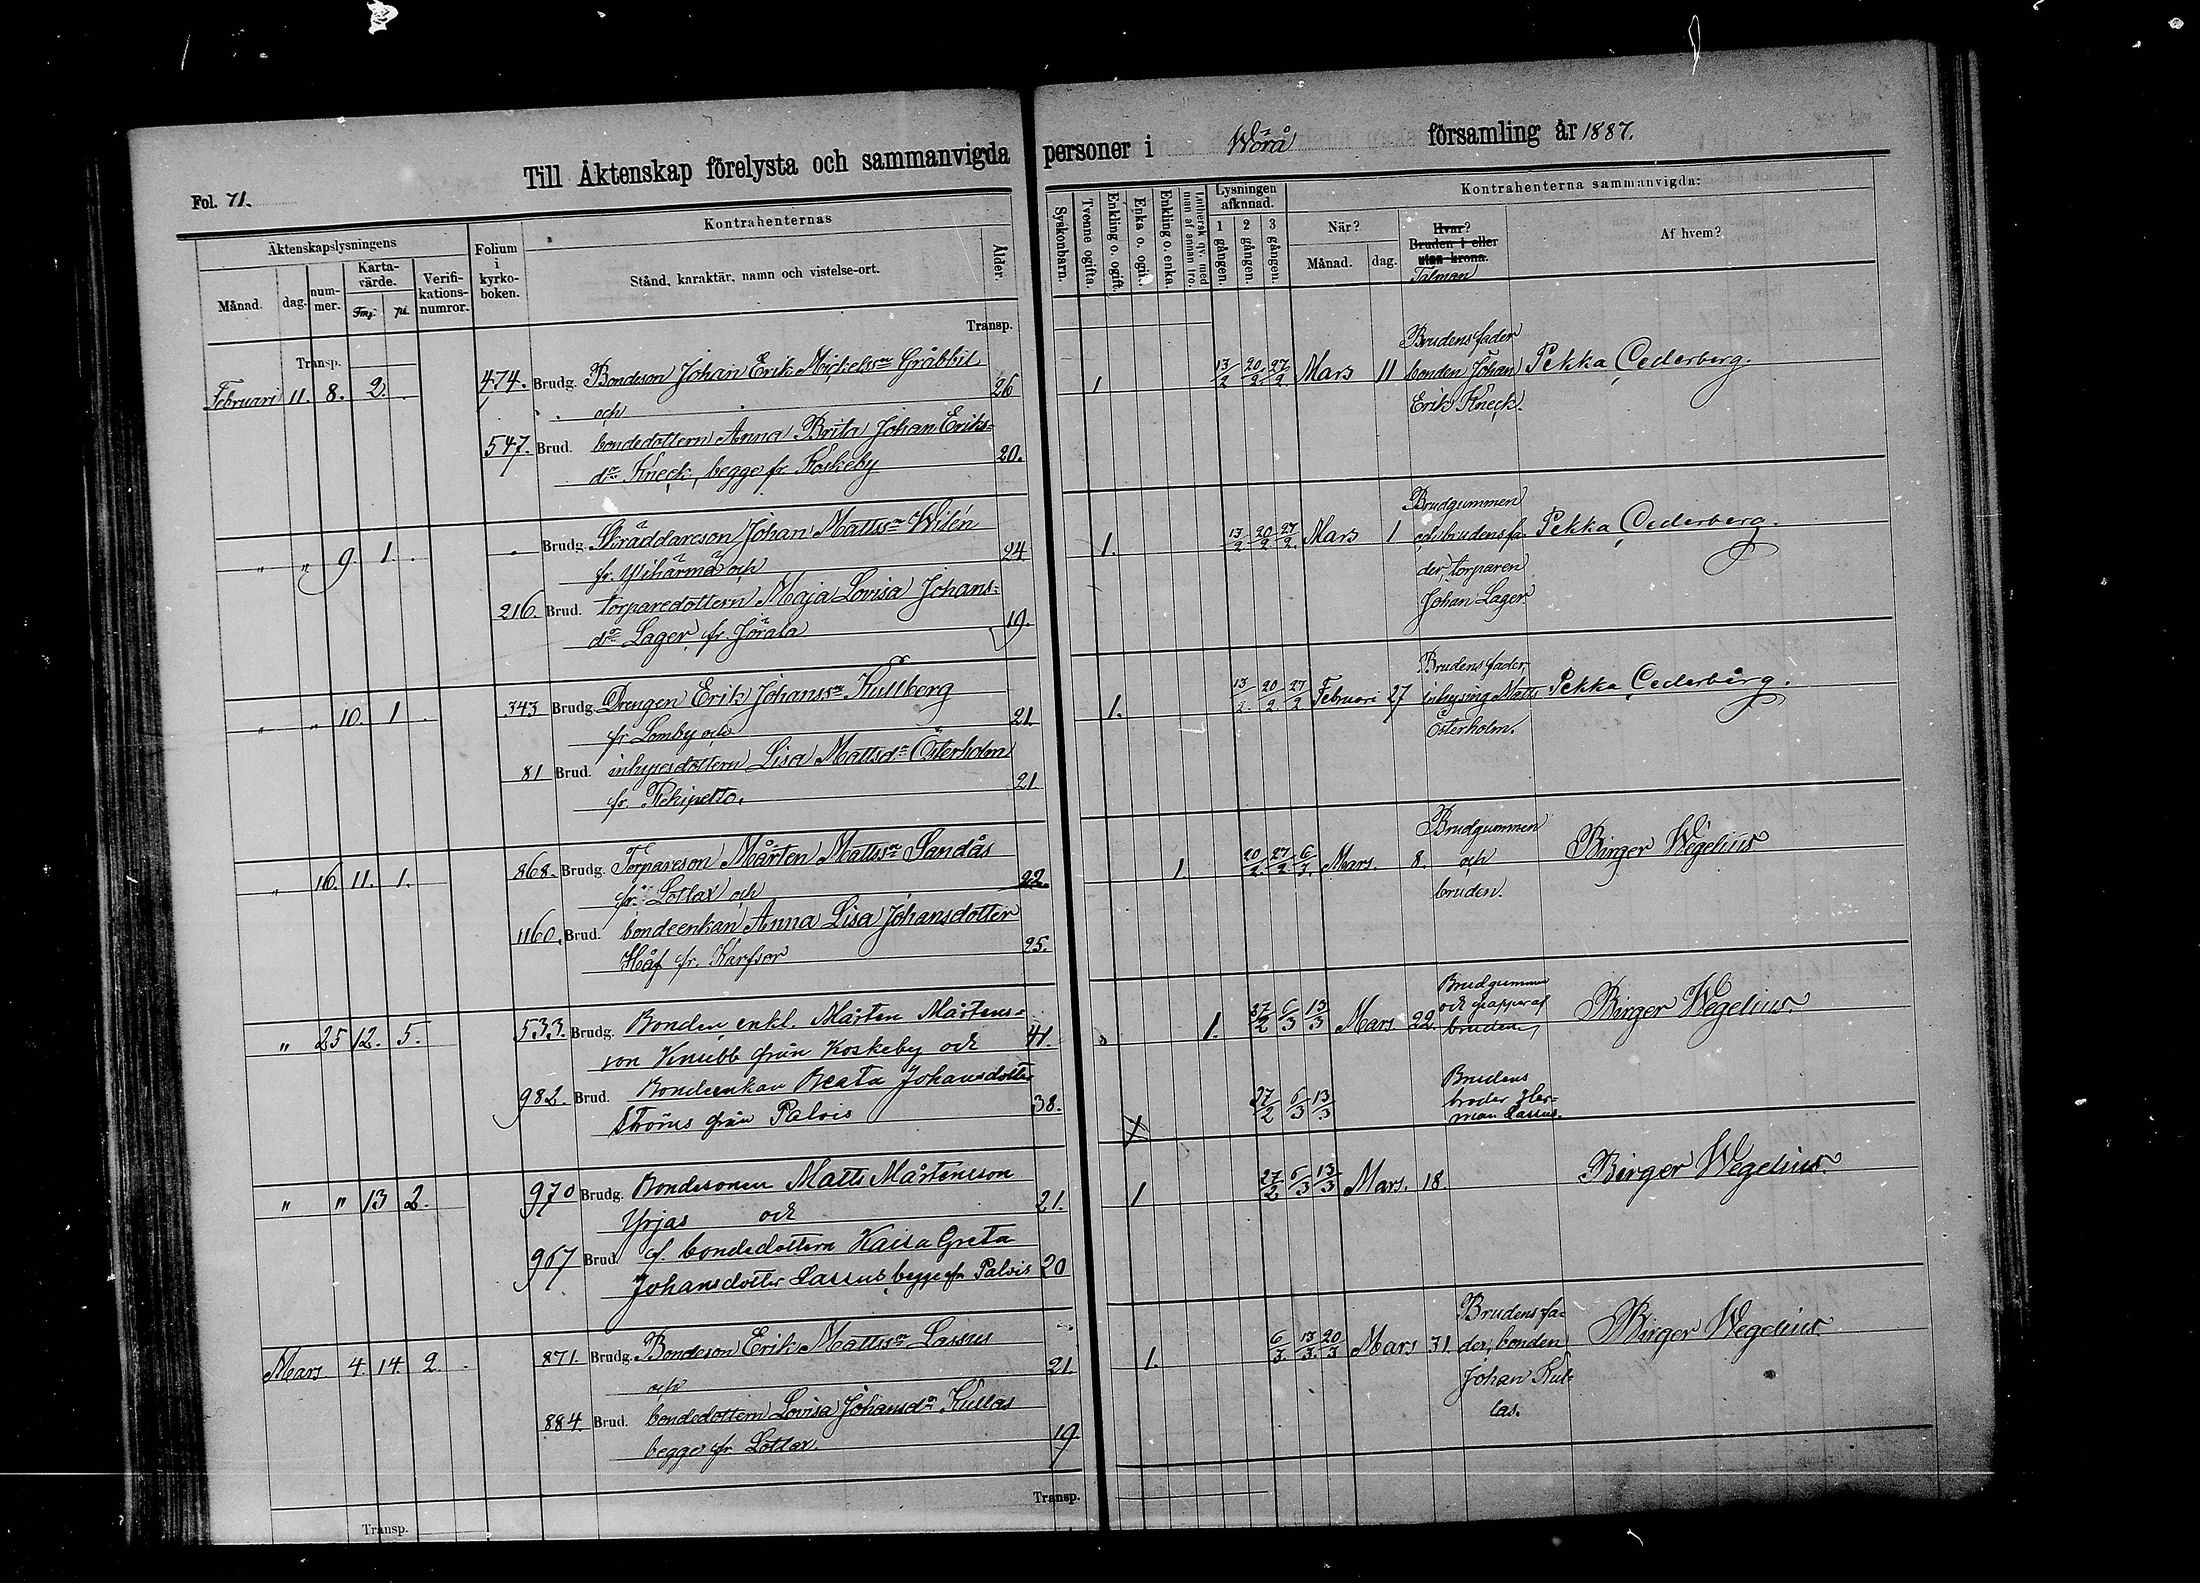 Till Äktenskap förelysta och sammanvigda personer i Wörå församling år 1887.
Fol. 71.
Äktenskapslysningens
Månad.
dag.
num-
mer.
Karta-
värde.
Fmg. pi.
Verifi-
kations-
numror.
Folium
i
kyrko-
boken.
Kontrahenternas
Stånd, karaktär, namn och vistelse-ort.
Ålder.
Syskonbarn.
Tvenne ogifta.
Enkling o. ogift.
Enka o. ogift.
Enkling o. enka.
Luthersk qv. med
man af annan tro.
Lysningen
afkunnad.
1 gången.
2 gången.
3 gången.
Kontrahenterna sammanvigda:
När?
Månad. dag.
Hvar?
Bruden i eller
utan krona.
Talman
Af hvem?
Transp. Transp.
Februari 11. 8. 2. 474. Brudg. Bondeson Johan Erik Mickelsson Gråbbil 26
och
547. Brud. bondedottern Anna Brita Johan Eriks-
dr Kneck, begge fr. Koskeby 20.
1 13/2 20/2 27/2 Mars 11
Brudens fader
bonden Johan
Erik Kneck.
Pekka Cederberg.
" " 9. 1. Brudg. Skräddareson Johan Mattsson Wilén
fr. Ylihärmä och 24
216. Brud. torparedottern Maja Lovisa Johans-
dr Lager fr. Jörala 19.
1. 13/2 20/2 27/2 Mars 1
Brudgummen
och brudens fa-
der, torparen
Johan Lager
Pekka Cederberg.
" " 10. 1 343 Brudg. Drengen Erik Johansson Kullberg
fr. Lomby och 21
81 Brud. inhysesdottern Lisa Mattsdr Österholm
fr. Rekipelto. 21
1. 13/2 20/2 27/2 Februari 27
Brudens fader,
inhysing Matts
Österholm.
Pekka Cederberg.
" 16. 11. 1. 868. Brudg. Torpareson Mårten Mattsson Sandås
fr. Lotlax och 22.
1160. Brud. bondeenkan Anna Lisa Johansdotter
Håf fr. Karfsor 25.
1. 20/2 27/2 6/3 Mars. 8.
Brudgummen
och
bruden.
Birger Wegelius
" 25 12. 5. 533. Brudg. Bonden, enkl. Mårten Mårtens-
son Knubb från Koskeby och 41.
982. Brud. Bondeenkan Beata Johansdotter
Ströms från Palvis 38.
1. 27/2 6/3 13/3 Mars 22.
Brudgummen
och
bruden,
Birger Wegelius.
27/2 6/3 13/3
Brudens
broder Her-
man Lassus.
" " 13 2. 970 Brudg. Bondesonen Matts Mårtensson
Yrjas och 21.
967 Brud. f. bondedottern Kaisa Greta
Johansdotter Lassus begge fr. Palvis 20
1 27/2 6/3 13/3 Mars. 18.
Birger Wegelius.
Mars 4. 14. 2. 871. Brudg. Bondeson Erik Mattsson Lassus
och 21.
884. Brud. bondedottern Lovisa Johansdr Kullas
begge fr. Lotlax 19
1. 6/3 13/3 20/3 Mars 31.
Brudens fa-
der, bonden
Johan Kul-
las.
Birger Wegelius.
Transp. Transp.